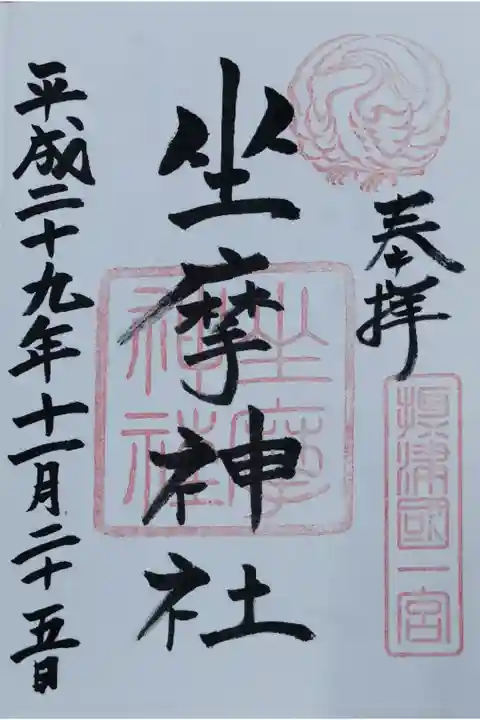 奉拝
摂津國一宮
坐摩神社
坐摩神社
平成二十九年十一月二十五日